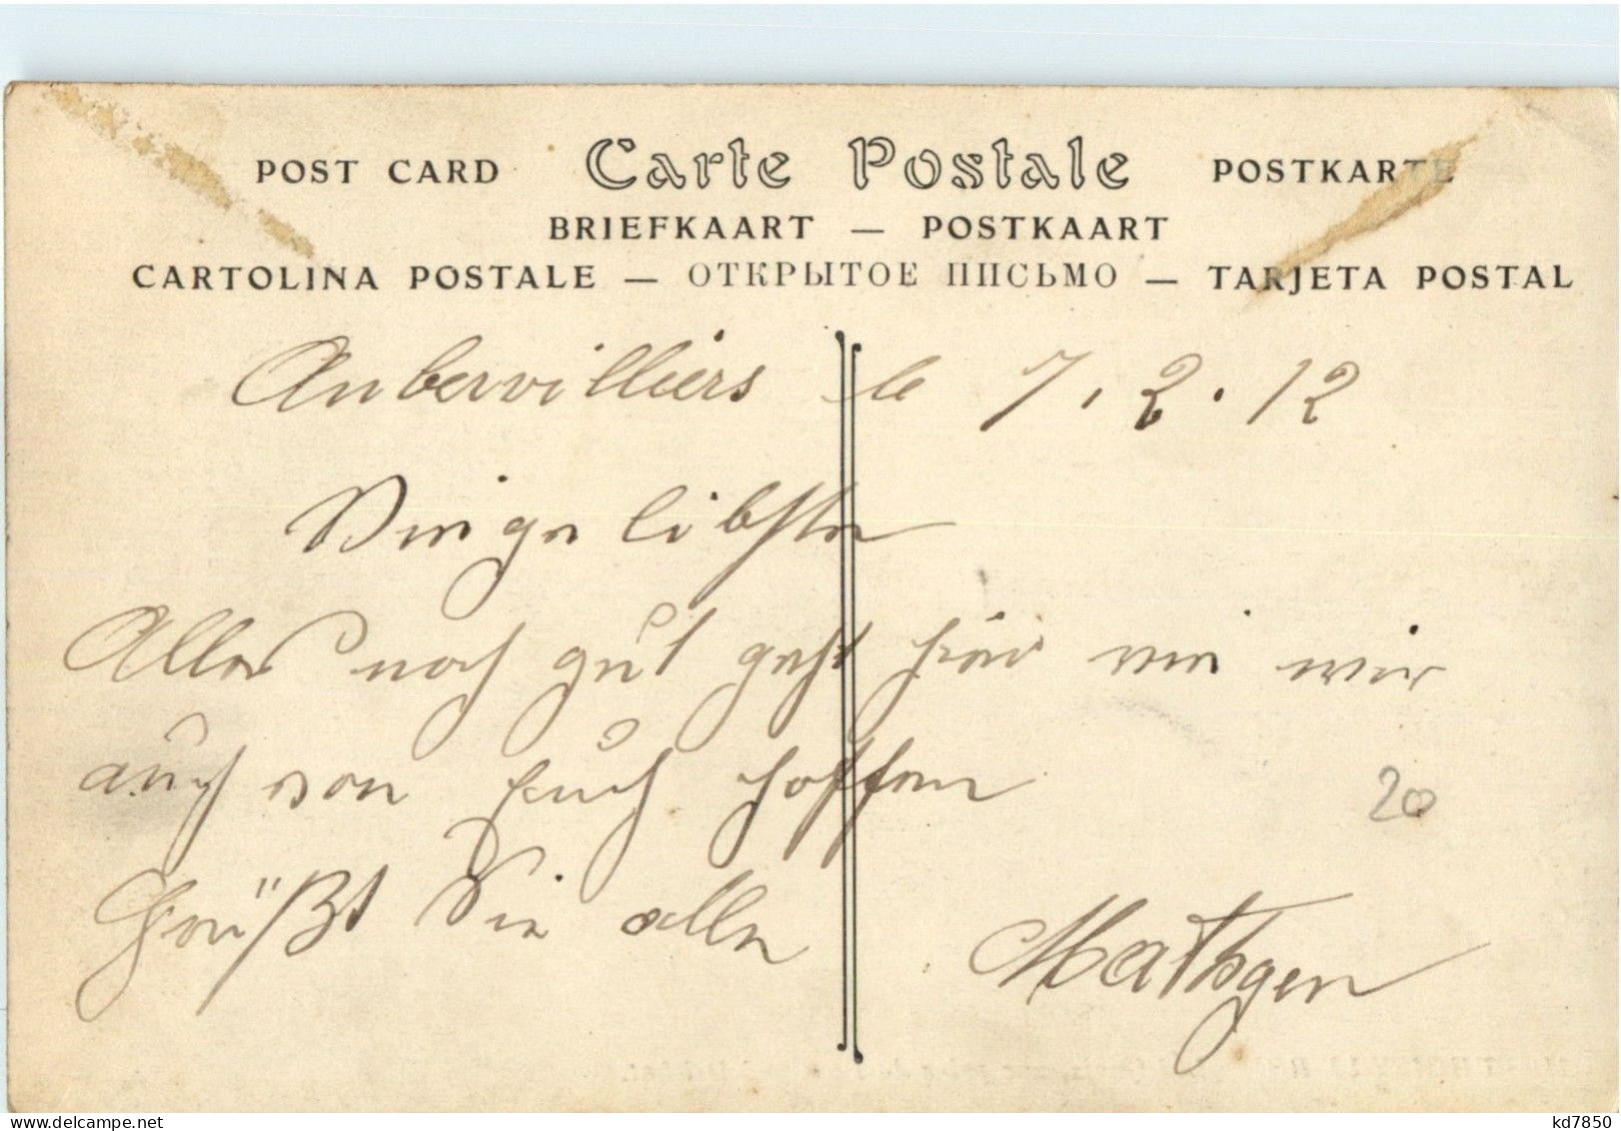 POST CARD Carte Postale POSTKARTE
BRIEFKAART — POSTKAART
CARTOLINA POSTALE — ОТКРЫТОЕ ПИСЬМО — TARJETA POSTAL
Aubervilliers le 7.2.12
libsten
Alles noch gut geht hier wie wir
auch von Euch hoffen
20
Grüßt Sie alle
Mathgen
kd7850